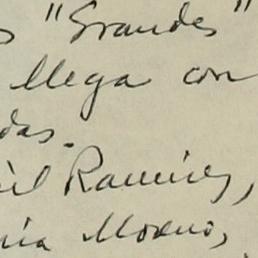 "Grandes"
llega con
das.
Ramírez,
Moreno,